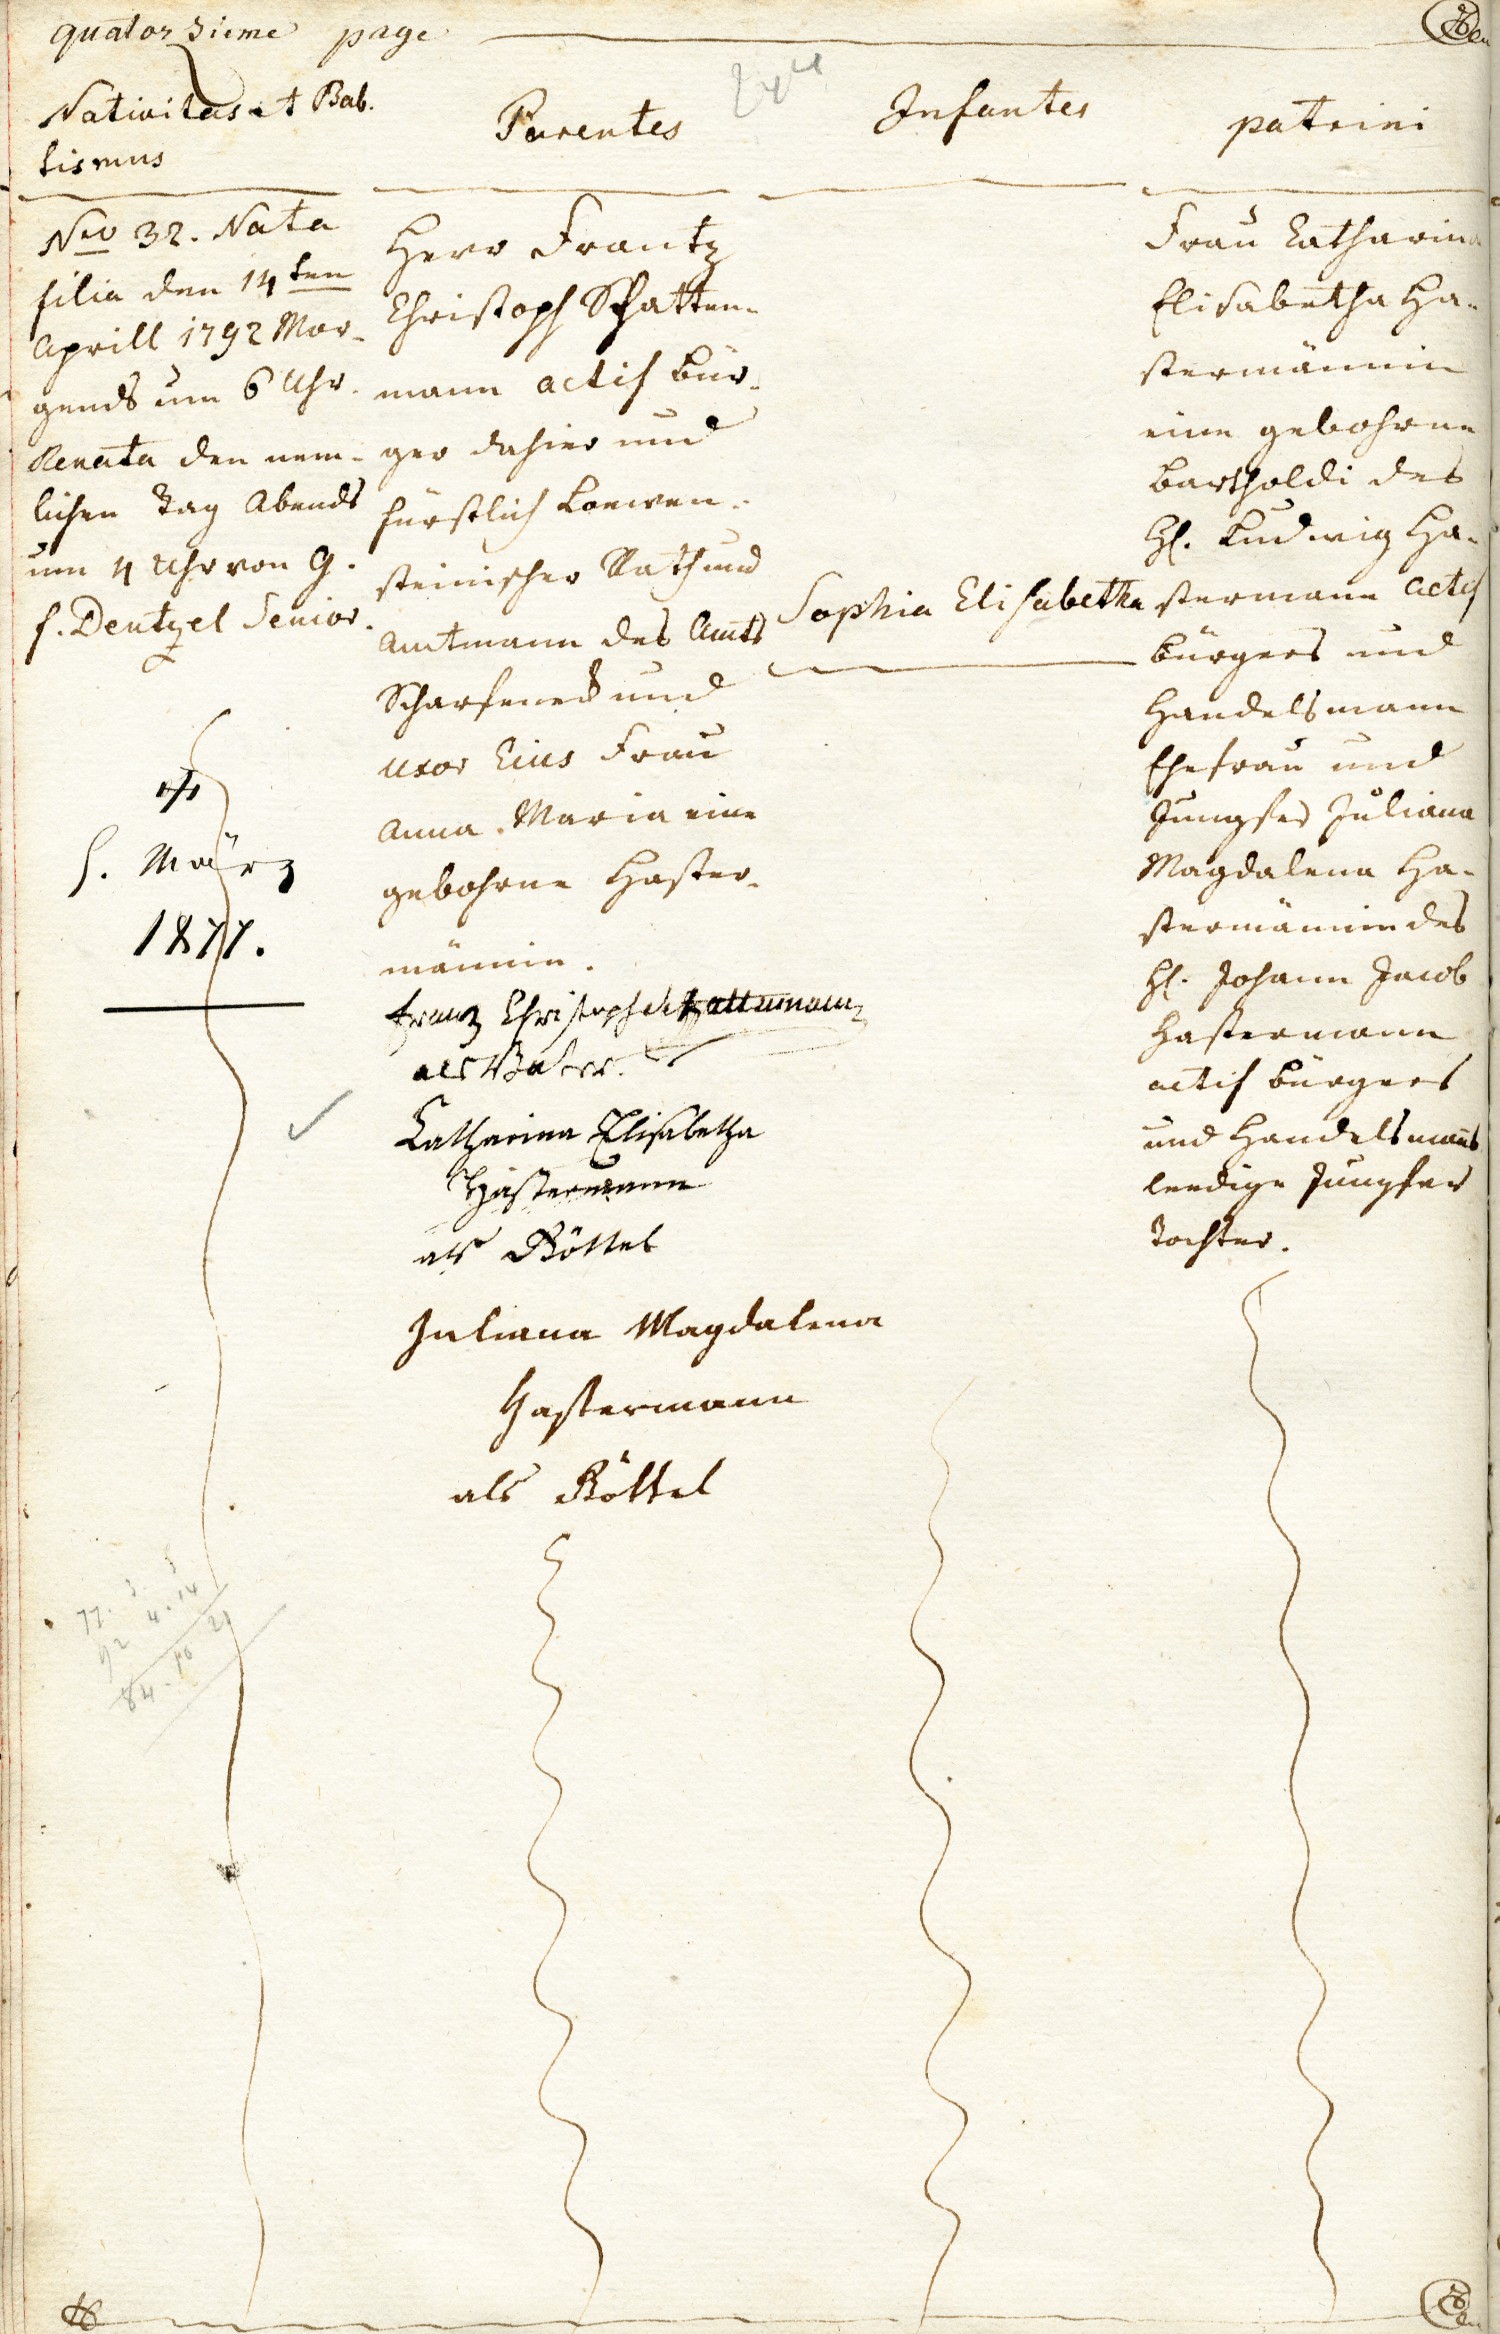 quatorzieme page
Nativitas et Bab.
tismus
Parentes
Infantes
patrini
Nro 32. Nata
filia den 14ten
Aprill 1792 Mor-
gends um 6 Uhr.
Renata den nem-
lichen Tag Abends
um 4 Uhr von G.
f. Dentzel Senior.
+
5. März
1877.
77. 3. 5
92 4. 14
84 - 10 21
Herr Frantz
Christoph Schatten-
mann actif Bür-
ger dahier und
fürstlich Loewen-
steinischer Rath und
Amtmann des Amts
Scharfeneck und
uxor Eius Frau
Anna Maria eine
gebohrne Haster-
männin.
Franz Christoph Schattenmann
als Vatter.
Catharina Elisabetha
Hastermann
als Göttel
Juliana Magdalena
Hastermann
als Göttel
Sophia Elisabetha
Frau Catharina
Elisabetha Ha-
stermännin
eine gebohrne
Bartholdi des
H. Ludwig Ha-
stermann actif
Bürgers und
Handelsmann
Ehefrau und
Jungfer Juliana
Magdalena Ha-
stermännin des
H. Johann Jacob
Hastermann
actif Bürgers
und Handelsmanns
leedige Jungfer
Tochter.